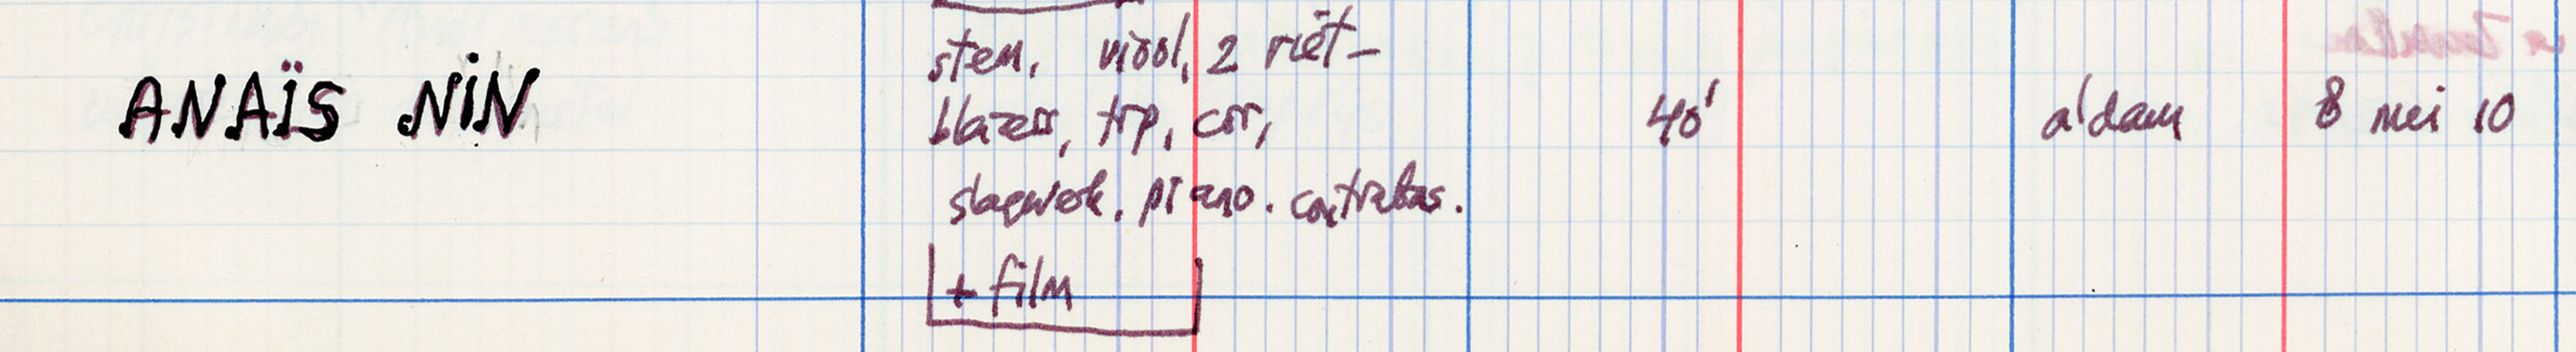 stem, viool, 2 riet-
ANAÏS NIN blazers, trp, cor, 40' a'dam 8 mei 10
slagwerk. piano. contrabas.
+ film